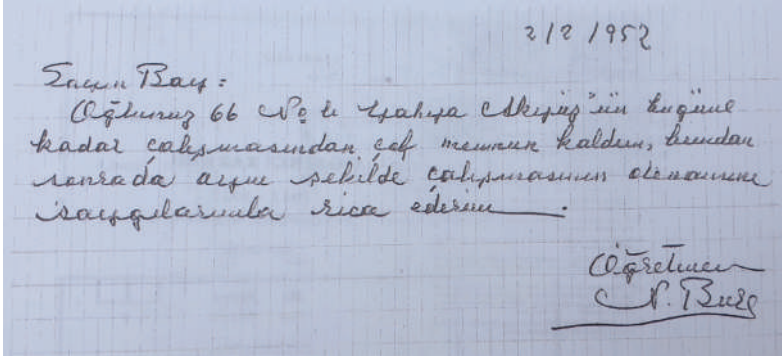 2/2/1952
Sayın Bay:
Oğlunuz 66 No lı Yahya Akyüz'ün bugüne
kadar çalışmasından çok memnun kaldım, bundan
sonrada aynı şekilde çalışmasının devamını
saygılarımla rica ederim.
Öğretmen
N.